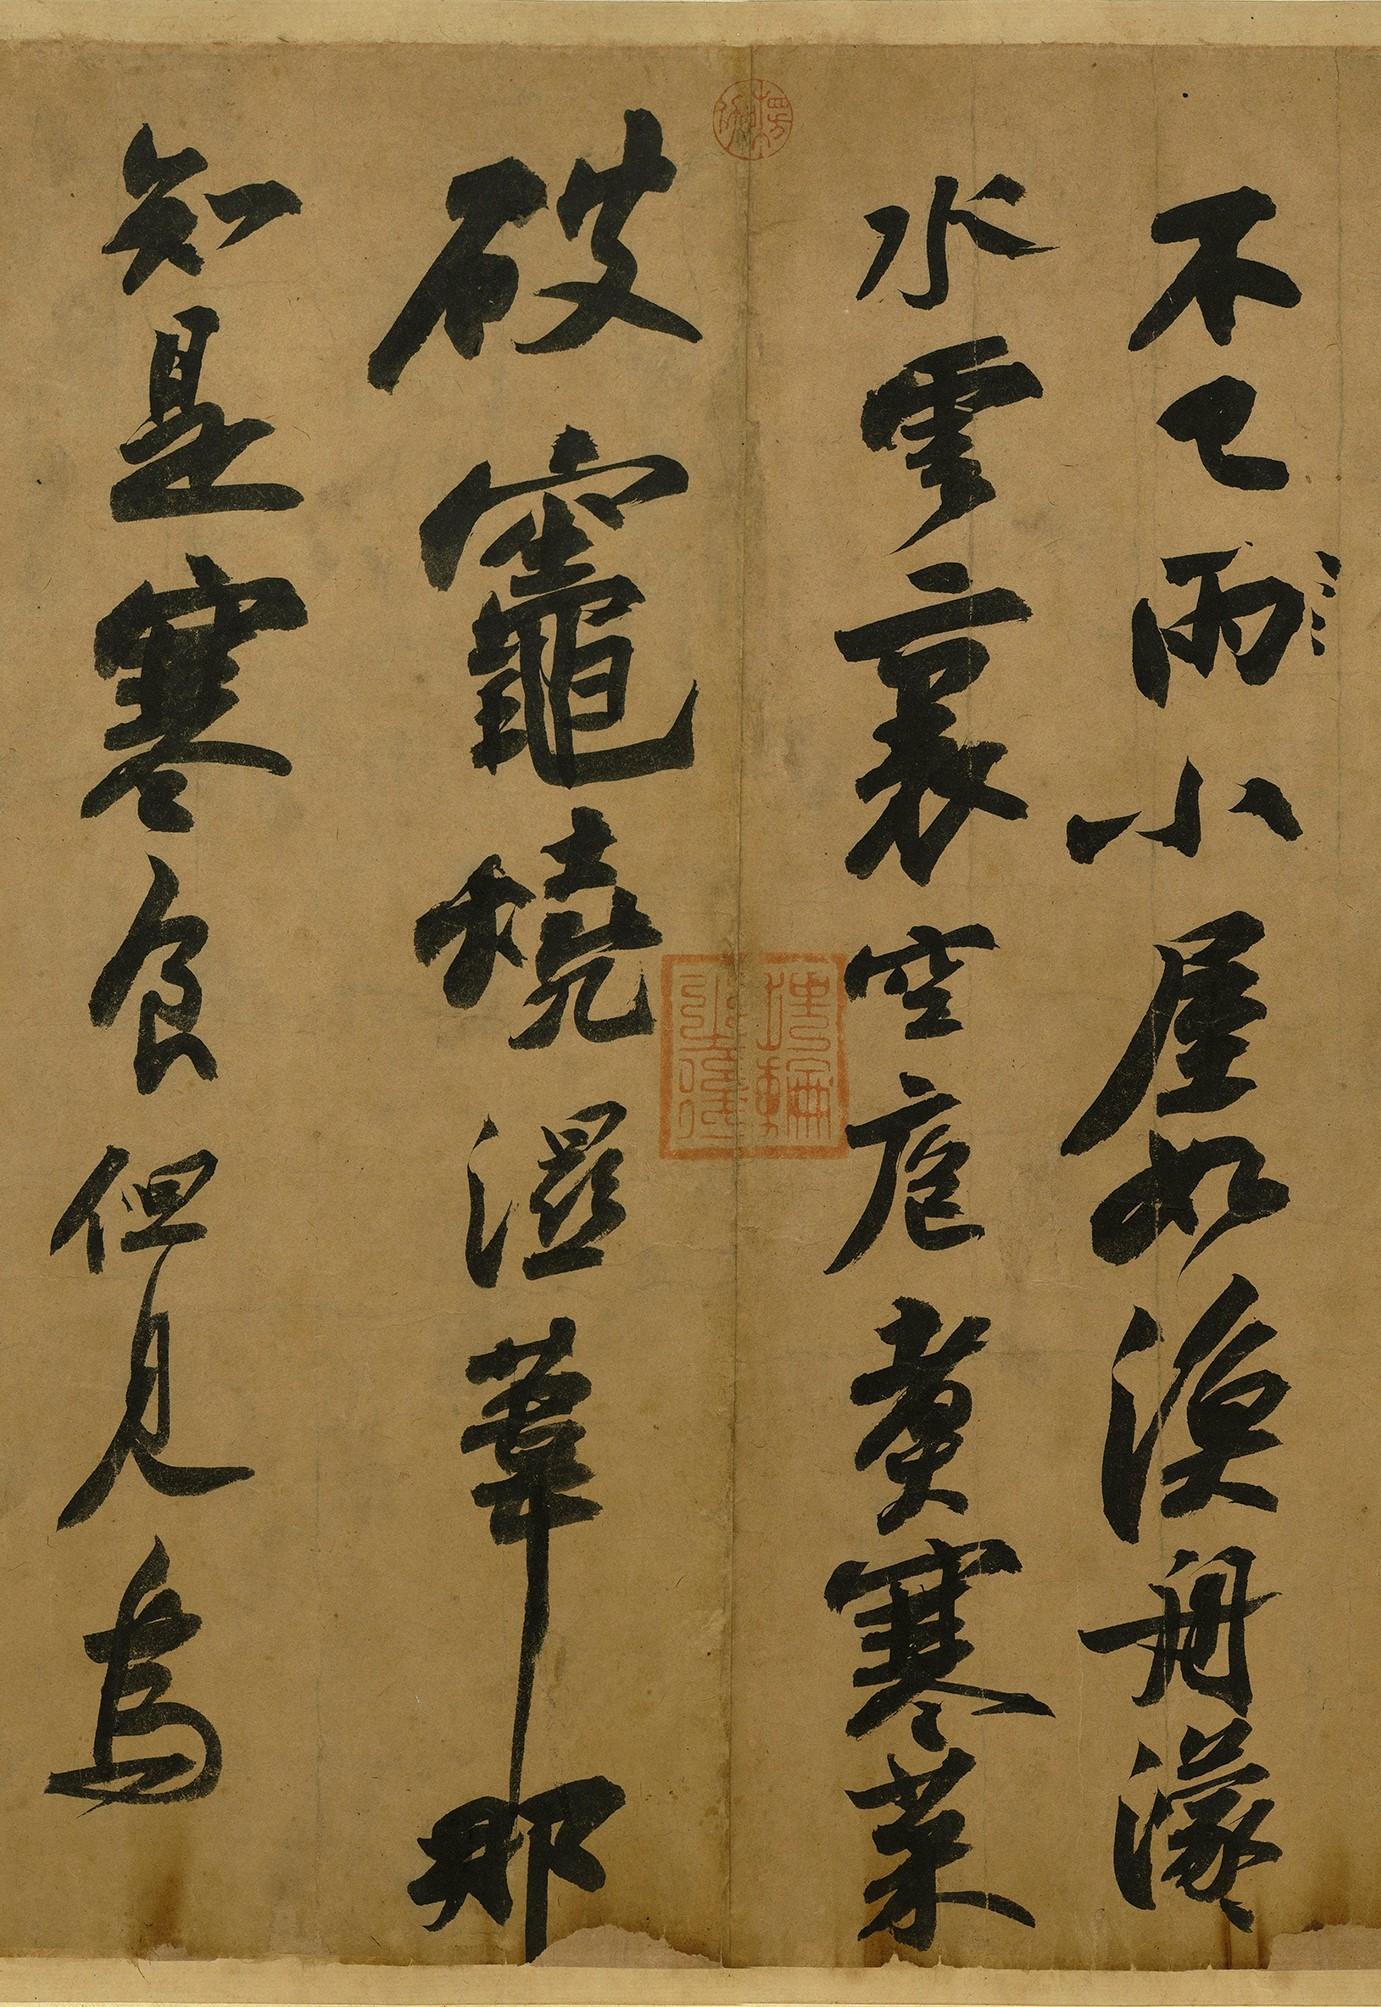 不已雨小屋如漁舟濛〻
水雲裏空庖煮寒菜
破竈燒濕葦那
知是寒食但見烏
埋輪之後